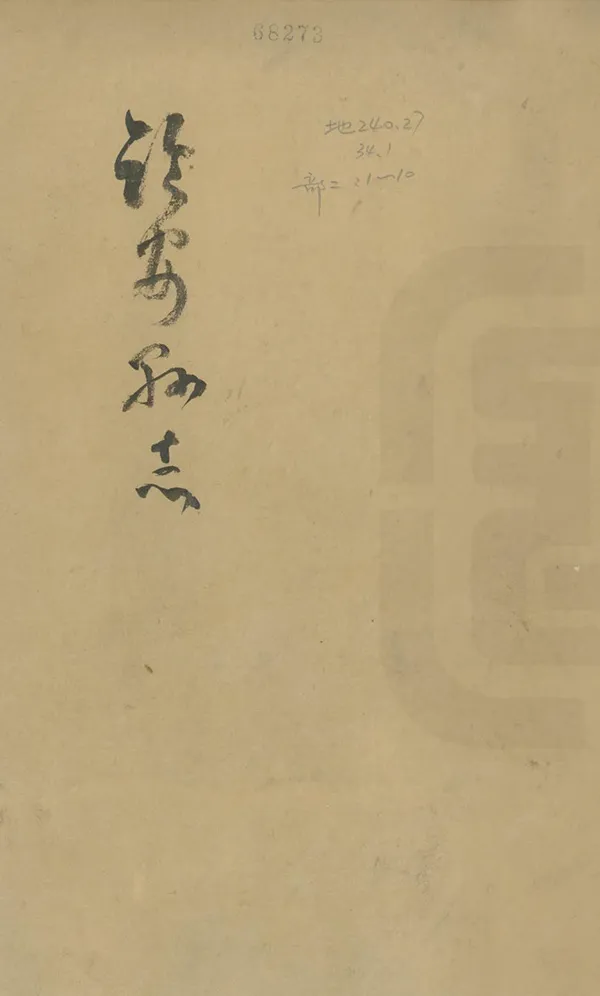 68273
地240.27
34.1
部二:1~10
詔安縣志